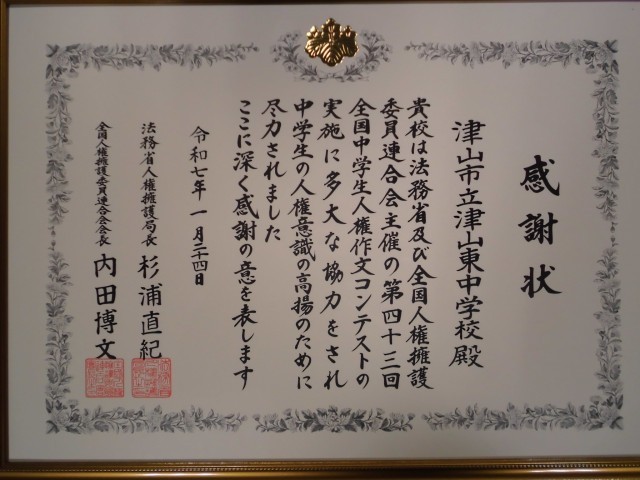 感謝状
津山市立津山東中学校殿
貴校は法務省及び全国人権擁護
委員連合会主催の第四十三回
全国中学生人権作文コンテストの
実施に多大な協力をされ
中学生の人権意識の高揚のために
尽力されました
ここに深く感謝の意を表します
令和七年一月二四日
法務省人権擁護局長 杉浦直紀
全国人権擁護委員連合会会長 内田博文